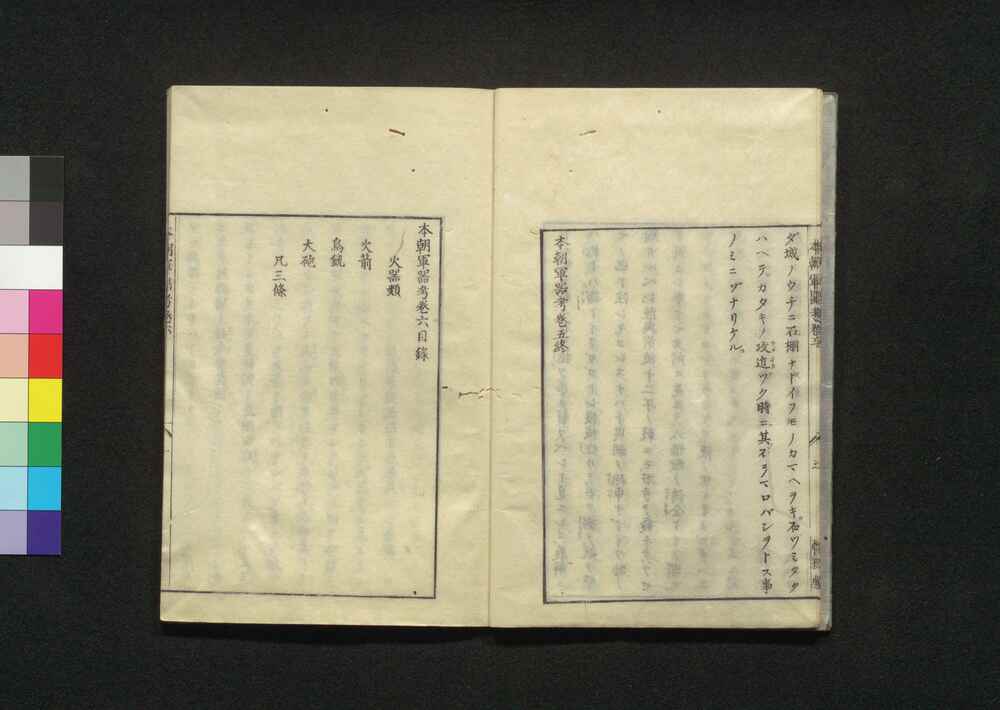 ダ城ノウチニ石棚ナドイフモノカマヘヲキ石ツミタク
ハヘテカタキノ攻道ツク時ニ其石ヲマロバシヲトス事
ノミニゾナリケル
本朝軍器考巻五終
本朝軍器考巻六目録
火器類
火箭
鳥銃
大砲
凡三條